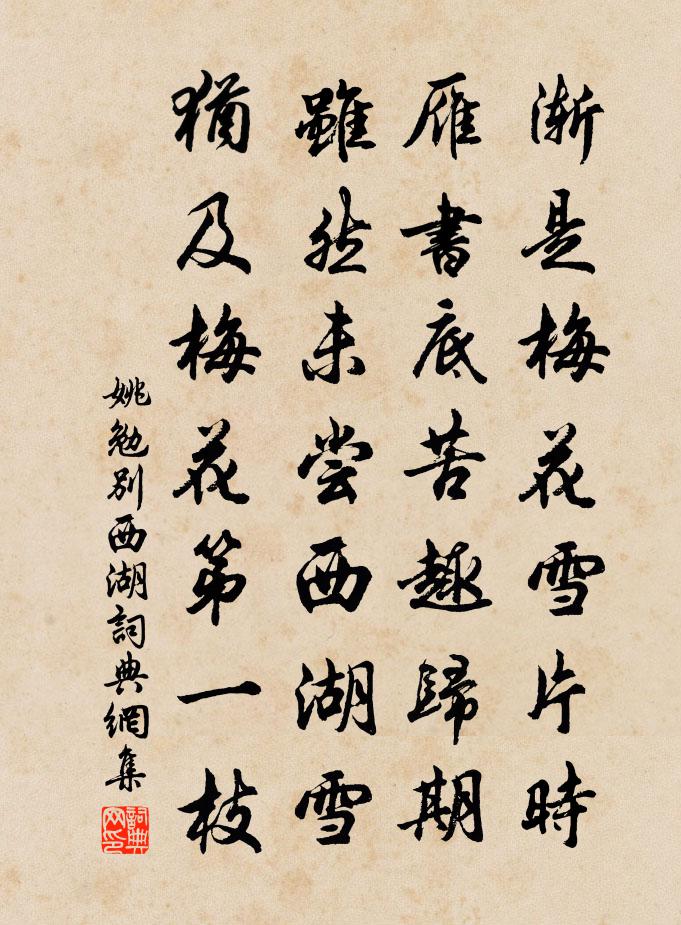 漸是梅花雪片時
雁書底苦趣歸期
雖然未尝西湖雪
猶及梅花第一枝
姚勉別西湖詞典網集
詞典網印